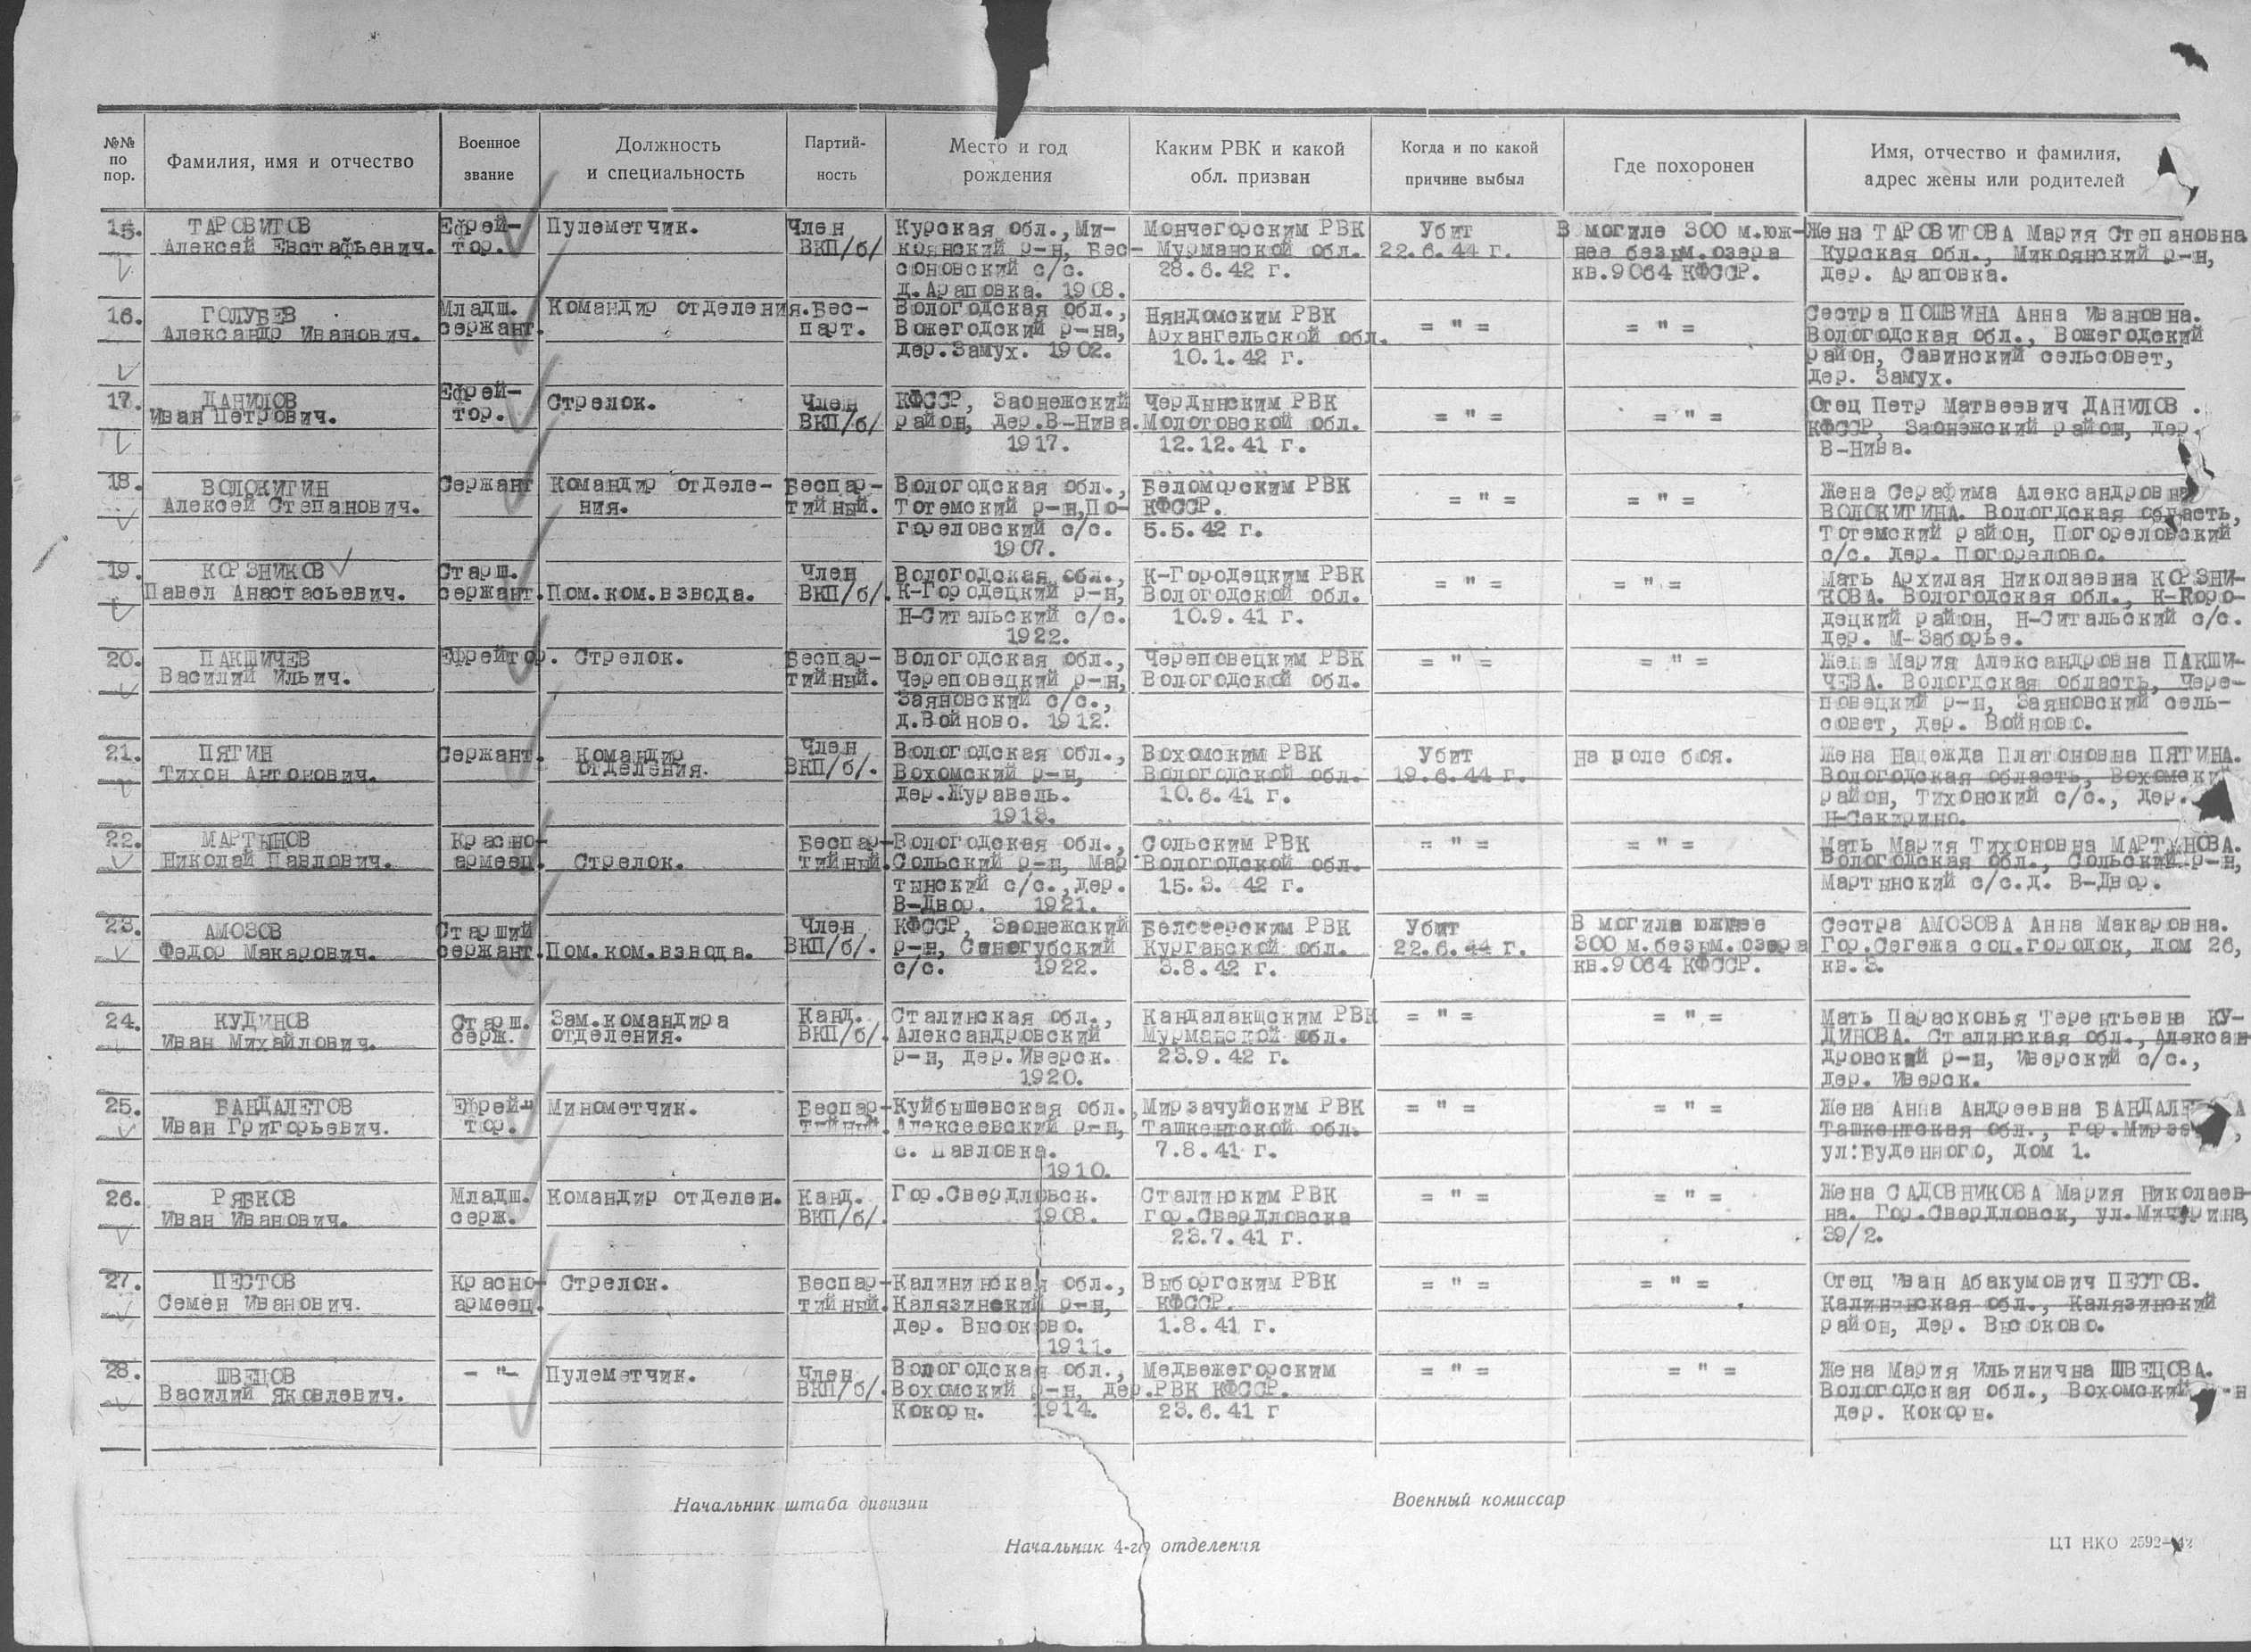 №№ по пор.
Фамилия, имя и отчество
Военное звание
Должность и специальность
Партий-ность
Место и год рождения
Каким РВК и какой обл. призван
Когда и по какой причине выбыл
Где похоронен
Имя, отчество и фамилия, адрес жены или родителей
15.
ТАРОВИТОВ
Алексей Евстафьевич.
Ефрей-
тор.
Пулеметчик.
Член
ВКП/б/
Курская обл., Ми-
коянский р-н, Бес-
соновский с/с.
д.Араповка. 1908.
Мончегорским РВК
Мурманской обл.
28.6.42 г.
Убит
22.6.44 г.
В могиле 300 м.юж-
нее безым.озера
кв.9064 КФССР.
Жена ТАРОВИТОВА Мария Степановна
Курская обл., Микоянский р-н,
дер. Араповка.
16.
ГОЛУБЕВ
Александр Иванович.
Младш.
сержант.
Командир отделения.
Бес-
парт.
Вологодская обл.,
Вожегодский р-на,
дер.Замух. 1902.
Няндомским РВК
Архангельской обл.
10.1.42 г.
= " =
= " =
Сестра ПОШВИНА Анна Ивановна.
Вологодская обл., Вожегодский
район, Савинский сельсовет,
дер. Замух.
17.
ДАНИЛОВ
Иван Петрович.
Ефрей-
тор.
Стрелок.
Член
ВКП/б/
КФССР, Заонежский
район, дер.В-Нива.
1917.
Чердынским РВК
Молотовской обл.
12.12.41 г.
= " =
= " =
Отец Петр Матвеевич ДАНИЛОВ .
КФССР, Заонежский район, дер.
В-Нива.
18.
ВОЛОКИТИН
Алексей Степанович.
Сержант
Командир отделе-
ния.
Беспар-
тийный.
Вологодская обл.,
Тотемский р-н,По-
гореловский с/с.
1907.
Беломорским РВК
КФССР.
5.5.42 г.
= " =
= " =
Жена Серафима Александровна
ВОЛОКИТИНА. Вологдская область,
Тотемский район, Погореловский
с/с. дер. Погорелово.
19.
КОРЗНИКОВ
Павел Анастасьевич.
Старш.
сержант.
Пом.ком.взвода.
Член
ВКП/б/.
Вологодская обл.,
К-Городецкий р-н,
Н-Ситальский с/с.
1922.
К-Городецким РВК
Вологодской обл.
10.9.41 г.
= " =
= " =
Мать Архилая Николаевна КОРЗНИ-
КОВА. Вологодская обл., К-Горо-
децкий район, Н-Ситальский с/с.
дер. М-Заборье.
20.
ПАКШИЧЕВ
Василий Ильич.
Ефрейтор.
Стрелок.
Беспар-
тийный.
Вологодская обл.,
Череповецкий р-н,
Заяновский с/с.,
д.Войново. 1912.
Череповецким РВК
Вологодской обл.
= " =
= " =
Жена Мария Александровна ПАКШИ-
ЧЕВА. Вологдская область, Чере-
повецкий р-н, Заяновский сель-
совет, дер. Войново.
21.
ПЯТИН
Тихон Антонович.
Сержант.
Командир
отделения.
Член
ВКП/б/.
Вологодская обл.,
Вохомский р-н,
дер.Журавель.
1913.
Вохомским РВК
Вологодской обл.
10.6.41 г.
Убит
19.6.44 г.
на поле боя.
Жена Надежда Платоновна ПЯТИНА.
Вологодская область, Вохомски
район, Тихонский с/с., дер.
Н-Секирино.
22.
МАРТЫНОВ
Николай Павлович.
Красно-
армеец.
Стрелок.
Беспар-
тийный.
Вологодская обл.,
Сольский р-н, Мар
тынский с/с.,дер.
В-Двор. 1921.
Сольским РВК
Вологодской обл.
15.3. 42 г.
= " =
= " =
Мать Мария Тихоновна МАРТЫНОВА.
Вологодская обл., Сольский р-н,
Мартынский с/с.д. В-Двор.
23.
АМОЗОВ
Федор Макарович.
Старший
сержант.
Пом.ком.взвода.
Член
ВКП/б/.
КФССР, Заонежский
р-н, Сеногубский
с/с. 1922.
Белозерским РВК
Курганской обл.
3.8.42 г.
Убит
22.6.44 г.
В могила южнее
300 м.безым.озера
кв.9064 КФССР.
Сестра АМОЗОВА Анна Макаровна.
Гор.Сегежа соц.городок, дом 26,
кв.3.
24.
КУДИНОВ
Иван Михайлович.
Старш.
серж.
Зам.командира
отделения.
Канд.
ВКП/б/.
Сталинская обл.,
Александровский
р-н, дер.Иверск.
1920.
Кандалакщским РВК
Мурманской обл.
23.9.42 г.
= " =
= " =
Мать Парасковья Терентьевна КУ-
ДИНОВА. Сталинская обл.,Алексан-
дровский р-н, Иверский с/с.,
дер. Иверск.
25.
БАНДАЛЕТОВ
Иван Григорьевич.
Ефрей-
тор.
Минометчик.
Беспар-
тийный.
Куйбышевская обл.,
Алексеевский р-н,
с. Павловка.
1910.
Мирзачуйским РВК
Ташкентской обл.
7.8.41 г.
= " =
= " =
Жена Анна Андреевна
Ташкентская обл.,
ул:Буденного, дом 1.
26.
РЯБКОВ
Иван Иванович.
Младш.
серж.
Командир отделен.
Канд.
ВКП/б/.
Гор.Свердловск.
1908.
Сталинским РВК
гор.Свердловска
23.7.41 г.
= " =
= " =
Жена САДОВНИКОВА Мария Николаев-
на. Гор.Свердловск, ул.Мичурина,
39/2.
27.
ПЕСТОВ
Семен Иванович.
Красно-
армеец.
Стрелок.
Беспар-
тийный.
Калининская обл.,
Калязинский р-н,
дер. Высоково.
1911.
Выборгским РВК
КФССР.
1.8.41 г.
= " =
= " =
Отец Иван Абакумович ПЕСТОВ.
Калининская обл., Калязинский
район, дер. Высоково.
28.
ШВЕЦОВ
Василий Яковлевич.
- "-
Пулеметчик.
Член
ВКП/б/.
Вологодская обл.,
Вохомский р-н, дер.
Кокоры. 1914.
Медвежегорским
РВК КФССР.
23.6.41 г
= " =
= " =
Жена Мария Ильинична ШВЕЦОВА.
Вологодская обл., Вохомский
дер. Кокоры.
Начальник штаба дивизии
Военный комиссар
Начальник 4-го отделения
ЦТ НКО 2592-42